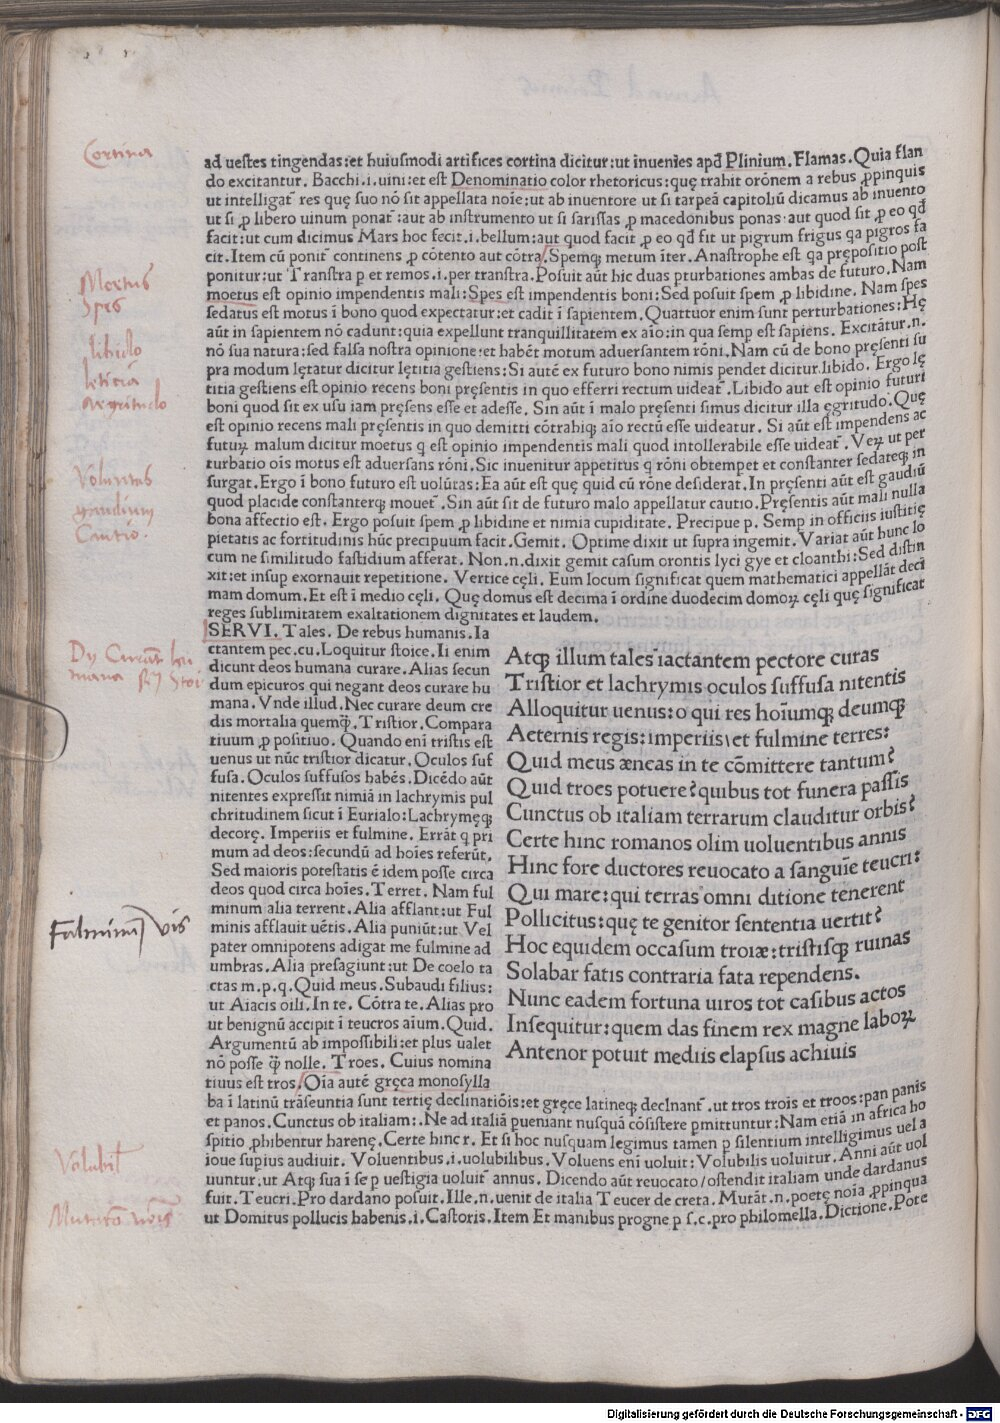 Cortina
ad uestes tingendas:et huiusmodi artifices cortina dicitur:ut inuenies apđ Plinium. Flamas. Quia flan
do excitantur. Bacchi.i.uini:et est Denominatio color rhetoricus:quę trahit orōnem a rebus ꝓpinquis
ut intelligat᷑ res quę suo nō sit appellata noīe:ut ab inuentore ut si tarpeā capitoliū dicamus ab inuento
ut si ꝓ libero uinum ponat᷑:aut ab instrumento ut si sarissas ꝓ macedonibus ponas.aut quod sit ꝓ eo qđ
facit:ut cum dicimus Mars hoc fecit.i.bellum:aut quod facit ꝓ eo qđ fit ut pigrum frigus qa pigros fa
cit. Item cū ponit᷑ continens ꝓ cōtento aut cōtra. Spemqꝫ metum īter. Anastrophe est qa prępositio post
ponitur:ut Transtra p et remos.i.per transtra. Posuit aūt hic duas pturbationes ambas de futuro. Nam
moetus est opinio impendentis mali:Spes est impendentis boni:Sed posuit spem ꝓ libidine. Nam spes
sedatus est motus ī bono quod expectatur:et cadit ī sapientem. Quattuor enim sunt perturbationes:Hę
aūt in sapientem nō cadunt:quia expellunt tranquillitatem ex aīo:in qua semp est sapiens. Excitātur.n.
nō sua natura:sed falsa nostra opinione:et habēt motum aduersantem rōni. Nam cū de bono pręsenti su
pra modum lętatur dicitur lętitia gestiens:Si autē ex futuro bono nimis pendet dicitur libido. Ergo lę
titia gestiens est opinio recens boni pręsentis in quo efferri rectum uideat᷑. Libido aut est opinio futuri
boni quod sit ex usu iam pręsens esse et adesse. Sin aūt ī malo pręsenti simus dicitur illa ęgritudo. Quę
est opinio recens mali pręsentis in quo demitti cōtrahiqꝫ aīo rectū esse uideatur. Si aūt est impendens ac
futuꝝ malum dicitur moetus q est opinio impendentis mali quod intollerabile esse uideat᷑. Veꝝ ut per
turbatio oīs motus est aduersans rōni. Sic inuenitur appetitus q rōni obtempet et constanter sedateqꝫ in
surgat. Ergo ī bono futuro est uolūtas:Ea aūt est quę quid cū rōne desiderat. In pręsenti aūt est gaudiū
quod placide constanterqꝫ mouet᷑. Sin aūt sit de futuro malo appellatur cautio. Pręsentis aūt mali nulla
bona affectio est. Ergo posuit spem ꝓ libidine et nimia cupiditate. Precipue p. Semp in officiis iustitię
pietatis ac fortitudinis hūc precipuum facit. Gemit. Optime dixit ut supra ingemit. Variat aūt hunc lo
cum ne similitudo fastidium afferat. Non.n.dixit gemit casum orontis lyci gye et cloanthi:Sed distin
xit:et insup exornauit repetitione. Vertice cęli. Eum locum significat quem mathematici appellāt deci
mam domum. Et est ī medio cęli. Quę domus est decima ī ordine duodecim domoꝝ cęli quę significat
reges sublimitatem exaltationem dignitates et laudem.
Moetus
Spes
libido
leticia
aegritudo
Voluntas
gaudium
Cautio.
SERVI. Tales. De rebus humanis. Ia
ctantem pec.cu. Loquitur stoice. Ii enim
dicunt deos humana curare. Alias secun
dum epicuros qui negant deos curare hu
mana. Vnde illud. Nec curare deum cre
dis mortalia quemq̄ꝫ. Tristior. Compara
tiuum ꝓ positiuo. Quando enī tristis est
uenus ut nūc tristior dicatur. Oculos suf
fusa. Oculos suffusos habēs. Dicēdo aūt
nitentes expressit nimiā in lachrymis pul
chritudinem sicut ī Eurialo:Lachrymęqꝫ
decorę. Imperiis et fulmine. Errāt q pri
mum ad deos:secundū ad hoīes referūt.
Sed maioris potestatis ē idem posse circa
deos quod circa hoīes. Terret. Nam ful
minum alia terrent. Alia afflant:ut Ful
minis afflauit uētis. Alia puniūt:ut Vel
pater omnipotens adigat me fulmine ad
umbras. Alia presagiunt:ut De coelo ta
ctas m.p.q. Quid meus. Subaudi filius:
ut Aiacis oili. In te. Cōtra te. Alias pro
ut benignū accipit ī teucros aīum. Quid.
Argumentū ab impossibili:et plus ualet
nō posse q̄ꝫ nolle. Troes. Cuius nomina
tiuus est tros. Oīa autē gręca monosylla
Atqꝫ illum tales iactantem pectore curas
Tristior et lachrymis oculos suffusa nitentis
Alloquitur uenus:o qui res hoīumqꝫ deumqꝫ
Aeternis regis:imperiis\et fulmine terres:
Quid meus æneas in te cōmittere tantum?
Quid troes potuere?quibus tot funera passis
Cunctus ob italiam terrarum clauditur orbis?
Certe hinc romanos olim uoluentibus annis
Hinc fore ductores reuocato a sanguīe teucri:
Qui mare:qui terras omni ditione tenerent
Pollicitus:quę te genitor sententia uertit?
Hoc equidem occasum troiæ:tristisqꝫ ruinas
Solabar fatis contraria fata rependens.
Nunc eadem fortuna uiros tot casibus actos
Insequitur:quem das finem rex magne laboꝝ
Antenor potuit mediis elapsus achiuis
ba ī latinū trāseuntia sunt tertię declinatiōis:et gręce latineqꝫ declnant᷑.ut tros trois et troos:pan panis
et panos. Cunctus ob italiam:. Ne ad italiā pueniant nusquā cōsistere pmittuntur:Nam etiā in africa ho
spitio ꝓhibentur harenę. Certe hinc r. Et si hoc nusquam legimus tamen p silentium intelligimus uel a
ioue supius audiuit. Voluentibus.i.uolubilibus. Voluens enī uoluit:Volubilis uoluitur. Anni aūt uol
uuntur.ut Atqꝫ sua ī se p uestigia uoluit᷑ annus. Dicendo aūt reuocato/ostendit italiam unde dardanus
fuit. Teucri. Pro dardano posuit. Ille.n.uenit de italia Teucer de creta. Mutāt.n.poetę noīa ꝓpinqua
ut Domitus pollucis habenis.i.Castoris. Item Et manibus progne p s.c.pro philomella. Dictione. Pote
Dij Curāt hu
mana
Fulminū vis
Volubil
Digitalisierung gefördert durch die Deutsche Forschungsgemeinschaft - DFG